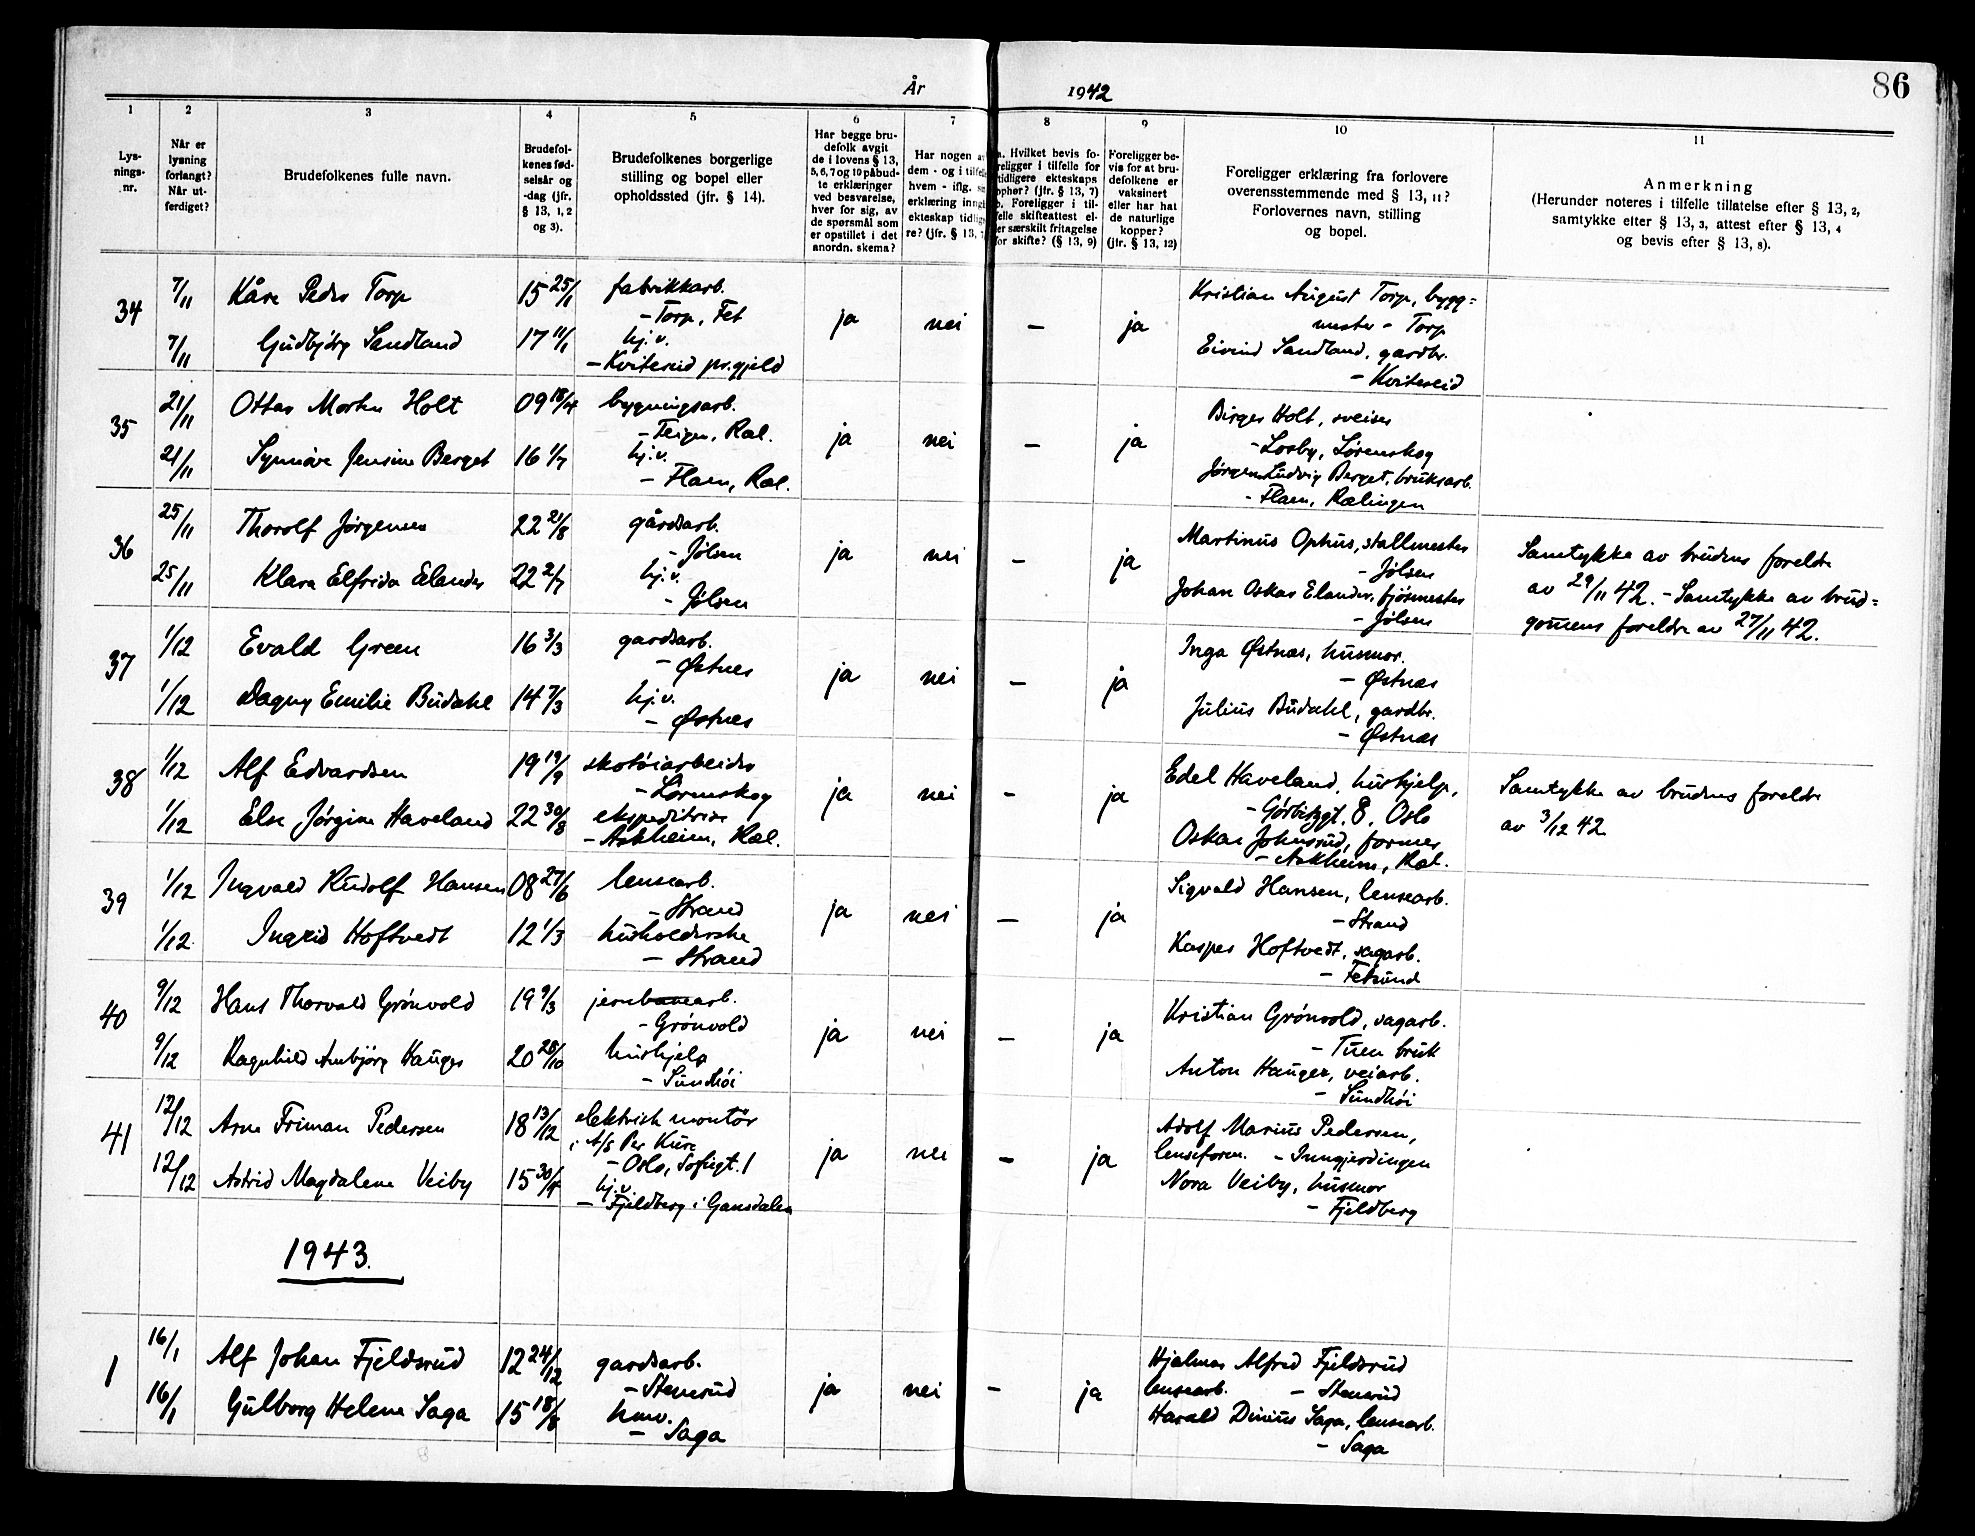 86
År 1942
1 2 3 4 5 6 7 8 9 10 11
Lys-
nings-
nr.
Når er
lysning
forlangt?
Når ut-
ferdiget?
Brudefolkenes fulle navn.
Brudefol-
kenes fød-
selsår og
-dag (jfr.
§ 13, 1, 2
og 3).
Brudefolkenes borgerlige
stilling og bopel eller
opholdssted (jfr. § 14).
Har begge bru-
defolk avgit
de i lovens § 13,
5, 6, 7 og 10 påbud-
te erklæringer
ved besvarelse,
hver for sig, av
de spørsmål som
er opstillet i det
anordn. skema?
Har nogen av
dem - og i tilfelle
hvem - iflg.
erklæring inngått
ekteskap tidlige-
re? (jfr. § 13, 7)
a. Hvilket bevis fo-
religger i tilfelle for
tidligere ekteskaps
ophør? (jfr. § 13, 7)
b. Foreligger i til-
felle skifteattest el-
ler særskilt fritagelse
for skifte? (§ 13, 9)
Foreligger be-
vis for at bru-
defolkene er
vaksinert
eller har hat
de naturlige
kopper?
(jfr. § 13, 12)
Foreligger erklæring fra forlovere
overensstemmende med § 13, 11?
Forlovernes navn, stilling
og bopel.
Anmerkning
(Herunder noteres i tilfelle tillatelse efter § 13, 2,
samtykke efter § 13, 3, attest efter § 13, 4
og bevis efter § 13, 8).
34
7/11 Kåre Peder Torp 15 25/1 fabrikkarb.
- Torp, Fet
7/11 Gudbjörg Sandland 17 11/1 hj.v.
- Kviteseid pr.gjeld
ja nei - ja
Kristian August Torp, bygg=
mester - Torp
Eivind Sandland, gardbr.
- Kviteseid
35
21/11 Ottar Morten Holt 09 18/4 bygningsarb.
- Teigen, Ræl.
21/11 Synnöve Jensine Berget 16 1/7 hj.v.
- Flaen, Ræl.
ja nei - ja
Birger Holt, sveiser
- Losby, Lørenskog
Jørgen Ludvig Berget, bruksarb.
- Flaen, Rælingen
36
25/11 Thorolf Jørgensen 22 21/8 gårdsarb.
- Jølsen
25/11 Klara Elfrida Elander 22 2/7 hj.v.
- Jølsen
ja nei - ja
Martinus Ophus, stallmester
- Jølsen
Johan Oskar Elander, fjösmester
- Jølsen
Samtykke av brudens foreldre
av 29/11 42. - Samtykke av brud=
gomens foreldre av 27/11 42.
37
1/12 Evald Green 16 3/3 gardsarb.
- Østnes
1/12 Dagny Emilie Budahl 14 7/3 hj.v.
- Østnes
ja nei - ja
Inga Østnæs, husmor.
- Østnæs
Julius Budahl, gardbr.
- Østnæs
38
1/12 Alf Edvardsen 19 19/9 skotöiarbeider
- Lørenskog
1/12 Else Jørgine Haveland 22 30/8 ekspeditrise
- Askheim, Ræl.
ja nei - ja
Edel Haveland, hushjelp,
- Görbitzgt. 8, Oslo
Oskar Johnsrud, former
- Askheim, Ræl.
Samtykke av brudens foreldre
av 3/12 42
39
1/12 Ingvald Rudolf Hansen 08 27/6 lensearb.
- Strand
1/12 Ingrid Hoftvedt 12 1/3 husholderske
- Strand
ja nei - ja
Sigvald Hansen, lensearb.
- Strand
Kasper Hoftvedt, sagarb.
- Fetsund
40
9/12 Hans Thorvald Grönvold 19 9/3 jernbanearb.
- Grönvold
9/12 Ragnhild Ambjörg Hauger 20 28/10 hushjelp
- Sundhöi
ja nei - ja
Kristian Grönvold, sagarb.
- Tuen bruk
Anton Hauger, veiarb.
- Sundhöi
41
12/12 Arne Friman Pedersen 18 13/12 elektrisk montör
i A/S Per Kure
- Oslo, Sofiegt. 1
12/12 Astrid Magdalene Veiby 15 30/4 hj.v.
- Fjeldberg i Gansdalen
ja nei - ja
Adolf Marius Pedersen,
lenseform. - Inngjerdingen
Nora Veiby, husmor
- Fjeldberg
1943.
1
16/1 Alf Johan Fjeldsrud 12 24/12 gardsarb.
- Stensrud
16/1 Gulborg Helene Saga 15 18/8 hmv.
- Saga
ja nei - ja
Hjalmar Alfred Fjeldsrud
lensearb. - Stensrud
Harald Dinius Saga, lensearb.
- Saga